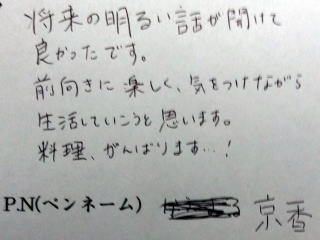 将来の明るい話が聞けて
良かったです。
前向きに楽しく、気をつけながら
生活していこうと思います。
料理、がんばります…!
P.N(ペンネーム) 京香